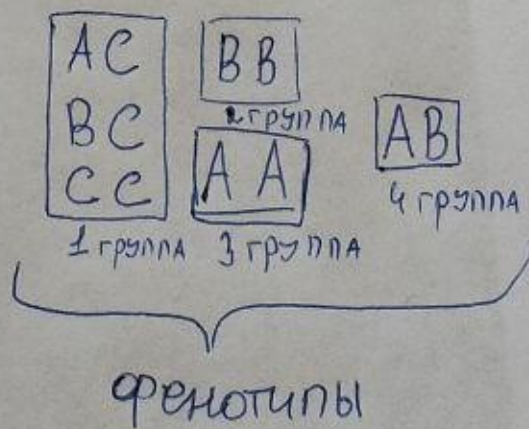 AC
BC
CC
1 группа
BB
2 группа
AA
3 группа
AB
4 группа
фенотипы